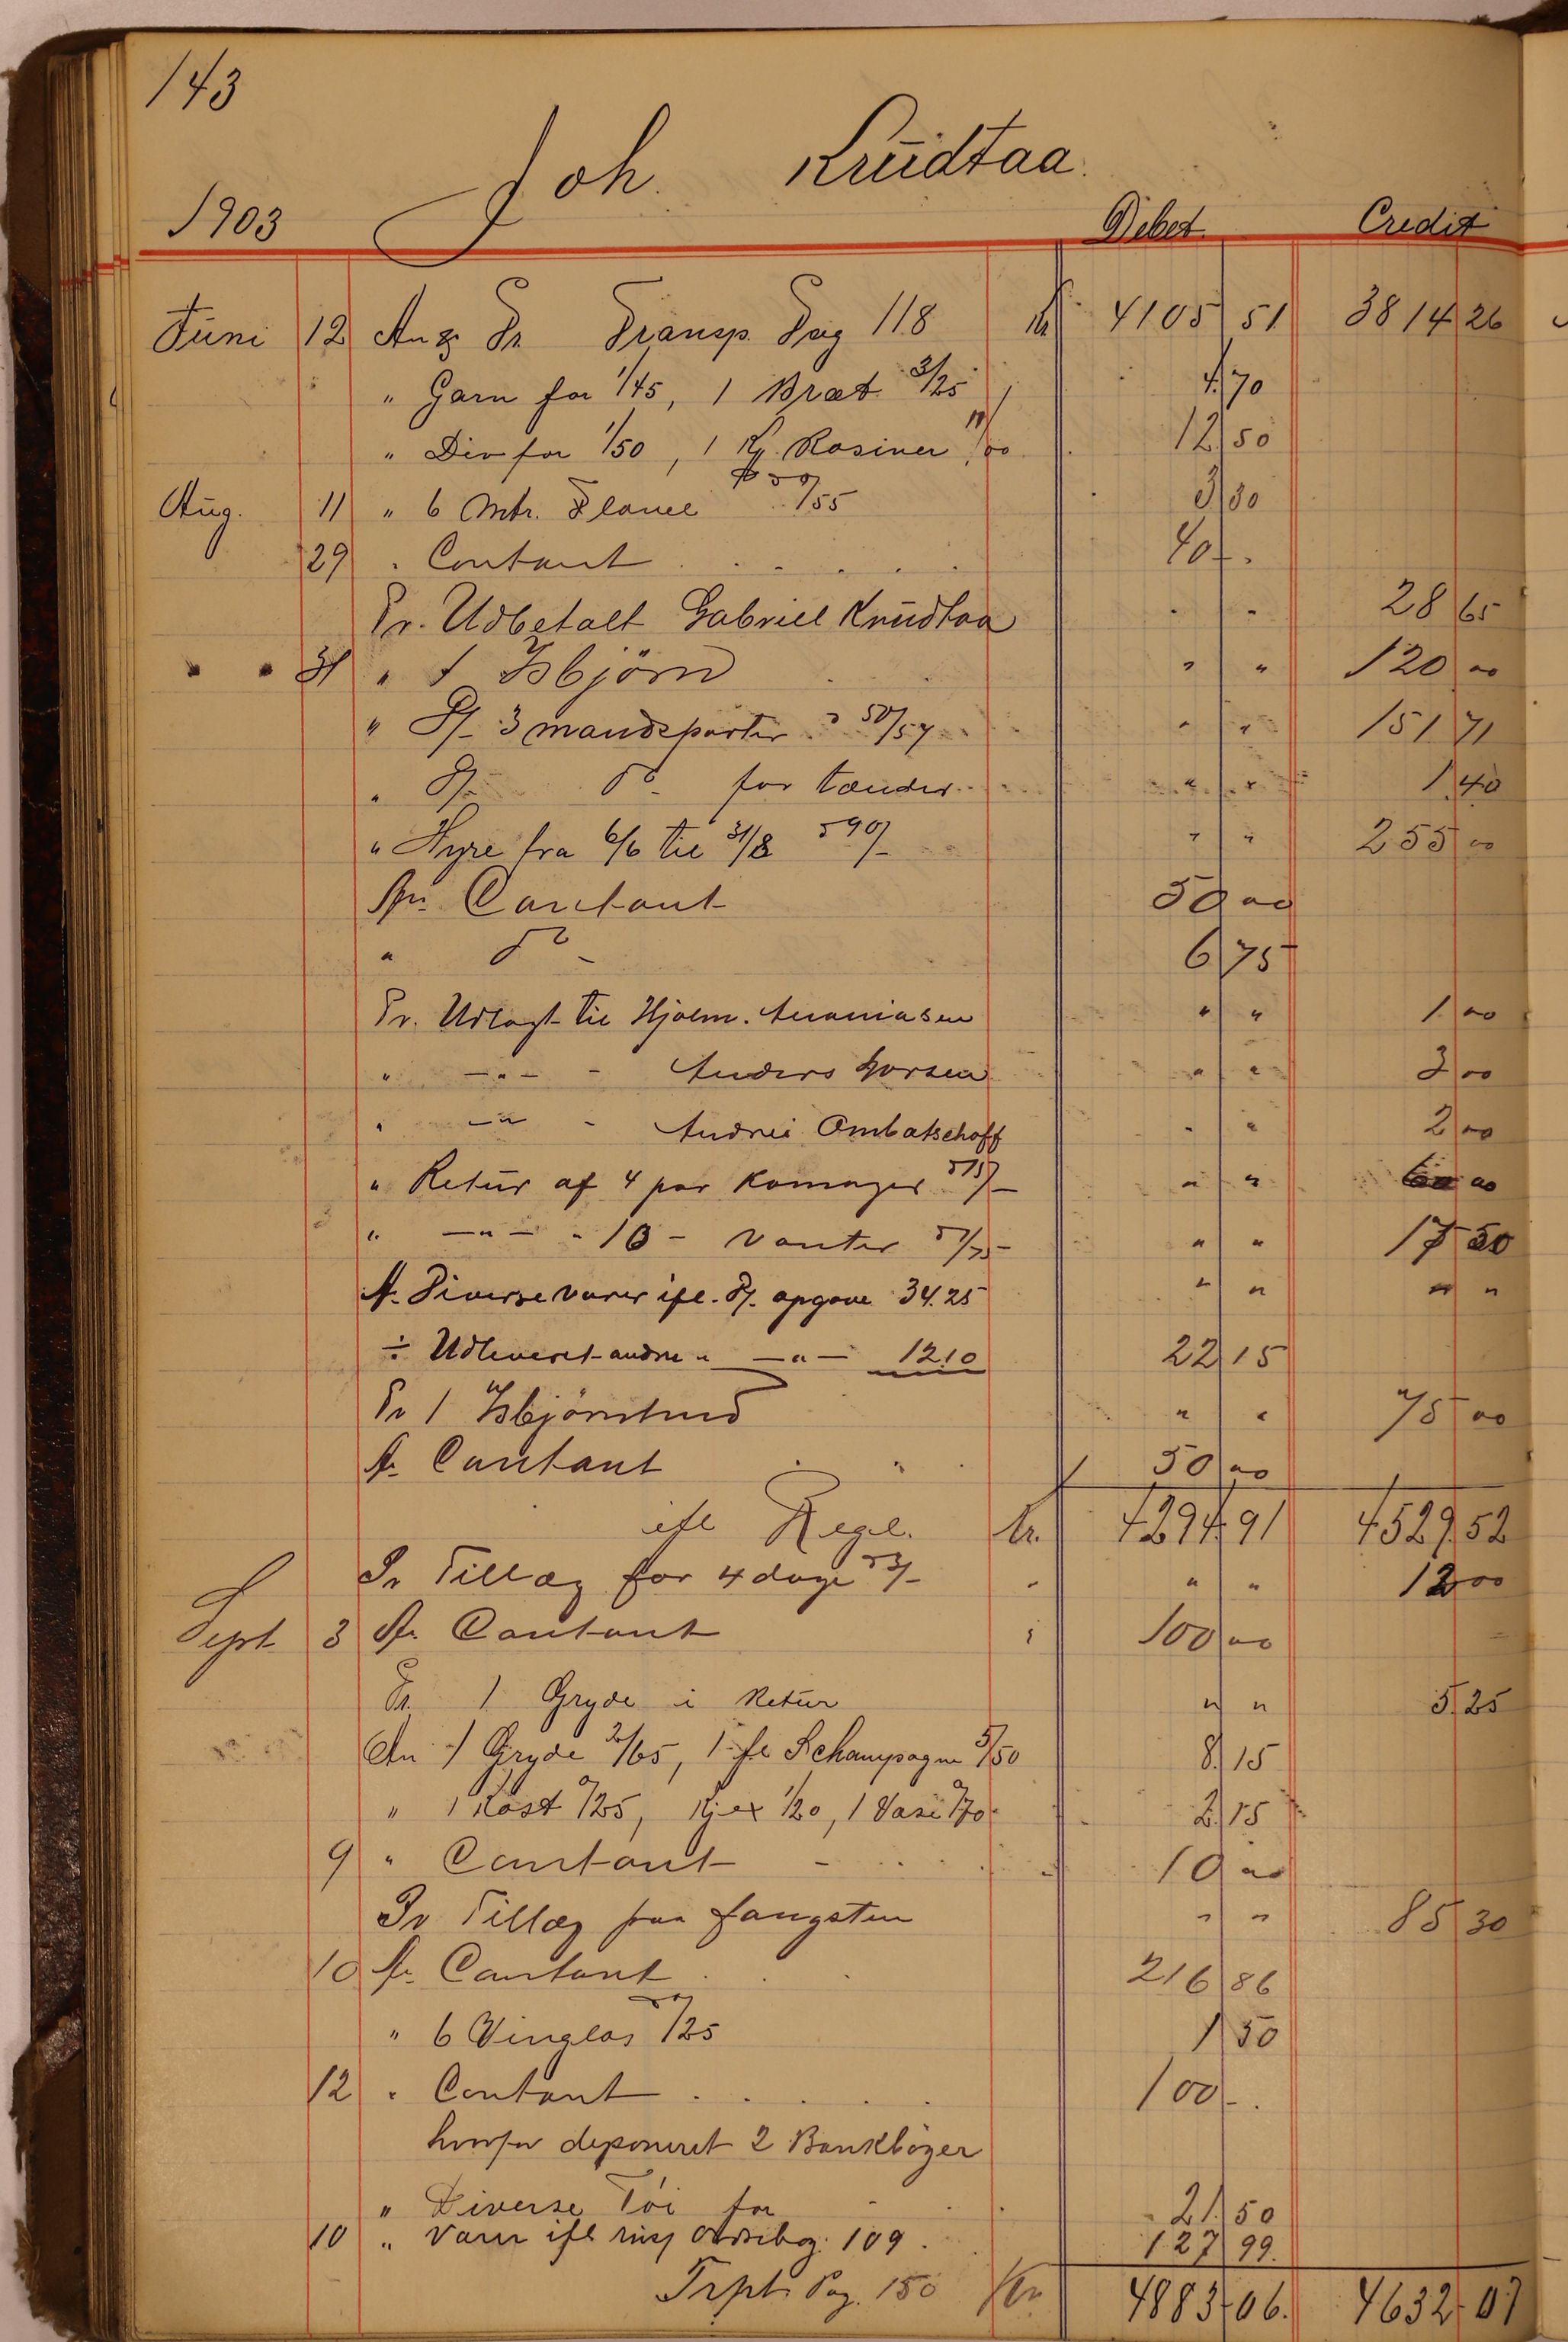 143
Joh. Kruidtaa.
1903 Debet Credit
Juni 12 An & Pr. Transp. Pag 118 Kr 4105 51 3814 26
" Garn for 1/45, 1 Bræt 3/25 4 70
" Div for 1/50, 1 Kj. Rosiner 11/00 12 50
Aug. 11 " 6 Mtr. Flanel à /55 3 30
29 " Contant 40 -
Pr. Udbetalt Gabriel Kruidtaa " " 28 65
" " 31 " 1 Isbjörn " " 120 00
" P/- 3 mandsparter à 50/57 " " 151 71
" P/- do - for tænder " " 1 40
" Hyre fra 6/6 til 31/8 à 90/- " " 255 00
An Contant 50 00
" do - 6 75
Pr. Udlagt til Hjalm. Ananiasen " " 1 00
" -"- - Anders Larsen " " 3 00
" -"- - Andrei Ombatschoff " " 2 00
" Retur af 4 par Komager à 15/- " " 60 00
" -"- - 10 - Vanter à 1/75 " " 17 50
An Diverse varer ifl. P/. opgave 34.25 " " " "
÷ Udleveret andre " -"- 12.10 22 15
Pr 1 Isbjörnhud " " 75 00
An Contant 50 00
ifl Regl. Kr. 4294 91 4529 52
Pr Tillæg for 4 dage à 3/- " " " 12 00
Sept 3 An Contant " 100 00
Pr. 1 Gryde i Retur " " 5 25
An 1 Gryde 2/65, 1 fl Schampagne 5/50 8 15
" 1 Kost /25, Kjex 1/20, 1 Vase /70 2 15
9 " Contant - 10 00
Pr Tillæg paa fangsten " " 85 30
10 An Contant 216 86
" 6 Vinglas à /25 1 50
12 " Contant 100 -
hvorfor deponeret 2 Bankböger
" Diverse Töi for 21 50
10 " Varer ifl Ordrebog 109 127 99
Trpt. Pag. 150 Kr 4883 06 4632 07